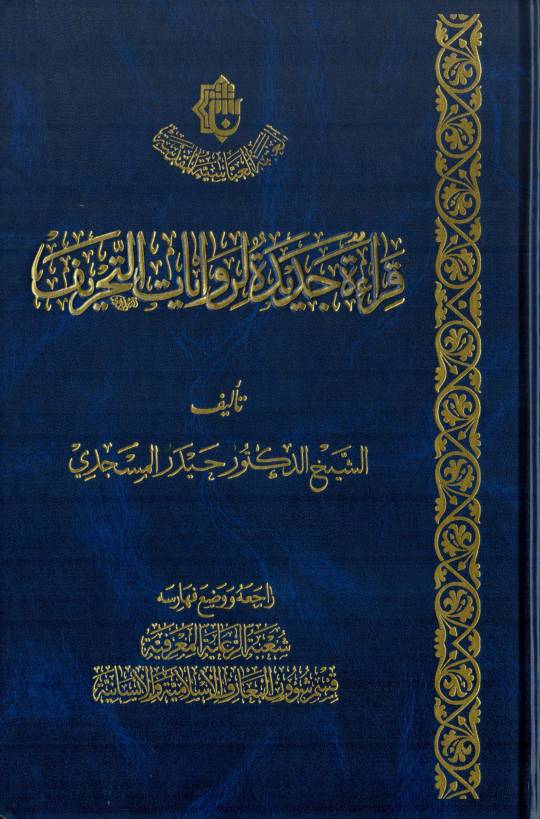 العتبة العباسية المقدسة
قراءة جديدة لروايات التحريف
تأليف
الشيخ الدكتور حيدر المسجدي
راجعه ووضع فهارسه
شعبة الرعاية المعرفية
قسم شؤون المعارف الإسلامية والإنسانية